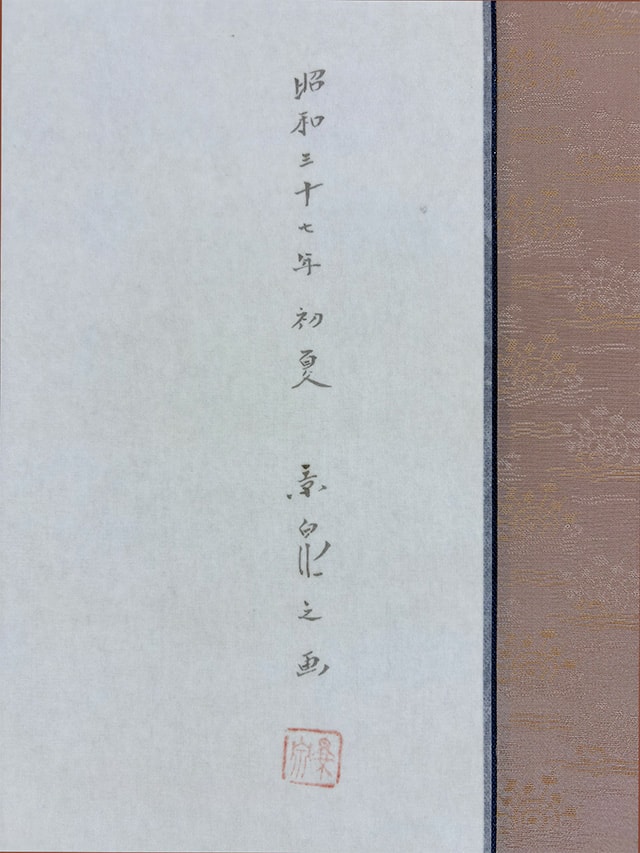 昭和三十七年初夏 景泉之画